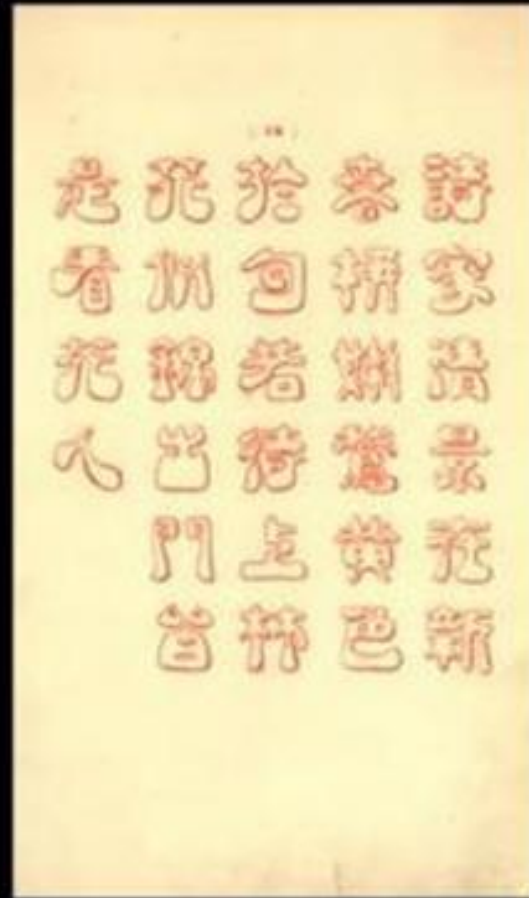 詩家清景在新
春黃色
勻若待上林
花似錦出門
是看花人